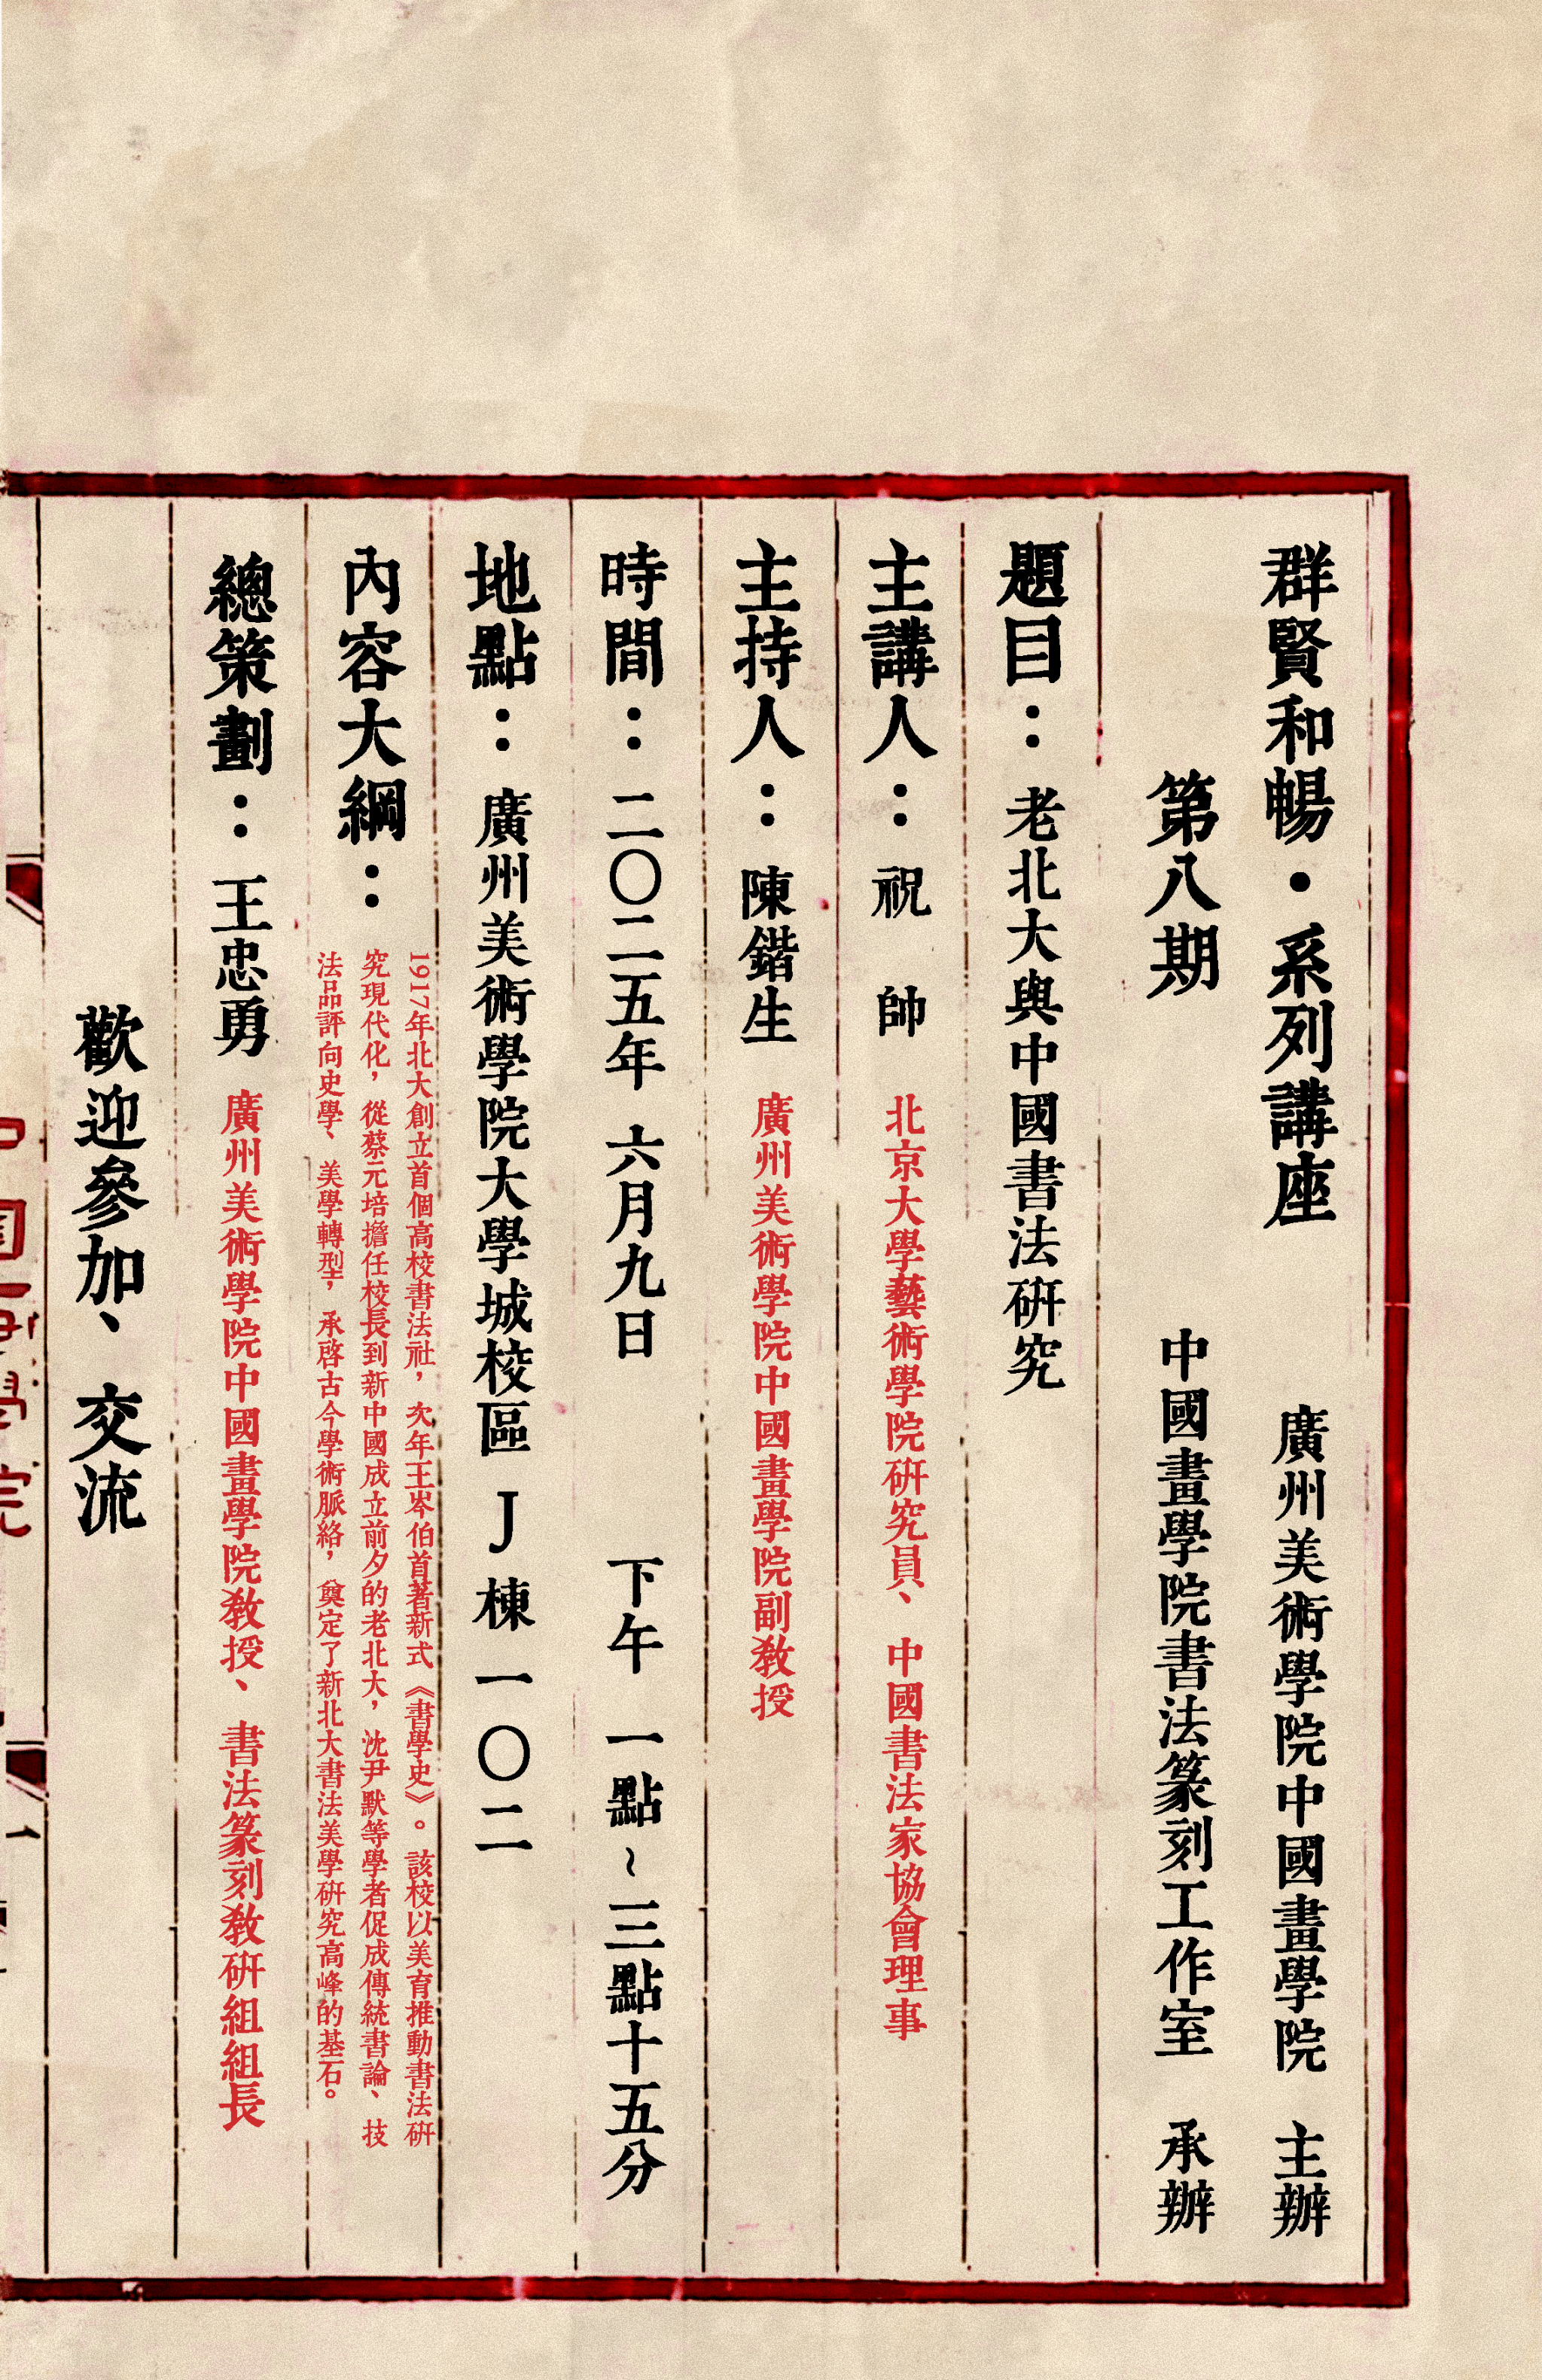 群賢和暢·系列講座 廣州美術學院中國畫學院 主辦
第八期 中國畫學院書法篆刻工作室 承辦
題目：老北大與中國書法研究
主講人：祝 帥 北京大學藝術學院研究員、中國書法家協會理事
主持人：陳鍇生 廣州美術學院中國畫學院副教授
時間：二〇二五年 六月九日 下午 一點~三點十五分
地點：廣州美術學院大學城校區 J 棟一〇二
內容大綱：
1917年北大創立首個高校書法社，次年王岑伯首著新式《書學史》。該校以美育推動書法研
究現代化，從蔡元培擔任校長到新中國成立前夕的老北大，沈尹默等學者促成傳統書論、技
法品評向史學、美學轉型，承啓古今學術脈絡，奠定了新北大書法美學研究高峰的基石。
總策劃：王忠勇 廣州美術學院中國畫學院教授、書法篆刻教研組組長
歡迎參加、交流